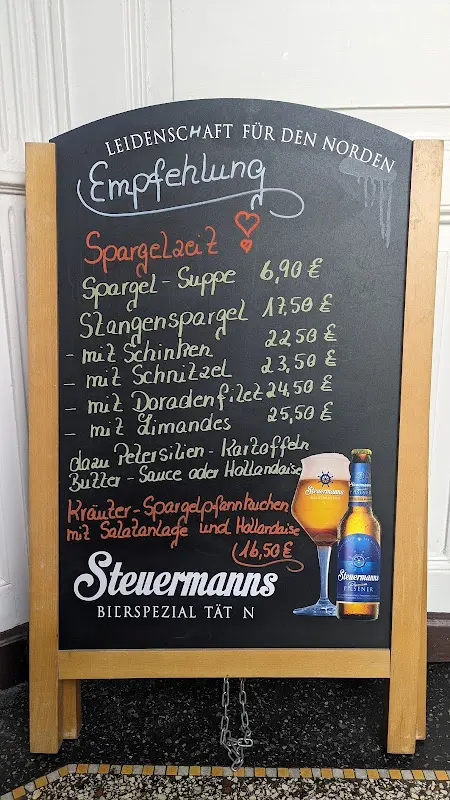 LEIDENSCHAFT FÜR DEN NORDEN
Empfehlung
Spargelzeit
Spargel-Suppe 6,90 €
Stangenspargel 17,50 €
- mit Schinken 22,50 €
- mit Schnitzel 23,50 €
- mit Doradenfilet 24,50 €
- mit Limandes 25,50 €
dazu Petersilien-Kartoffeln
Butter-Sauce oder Hollandaise
Kräuter-Spargelpfannkuchen
mit Salatanlage und Hollandaise
16,50 €
Steuermanns
BIERSPEZIAL TÄT N
Steuermanns
Steuermanns
Steuermanns
PILSENER